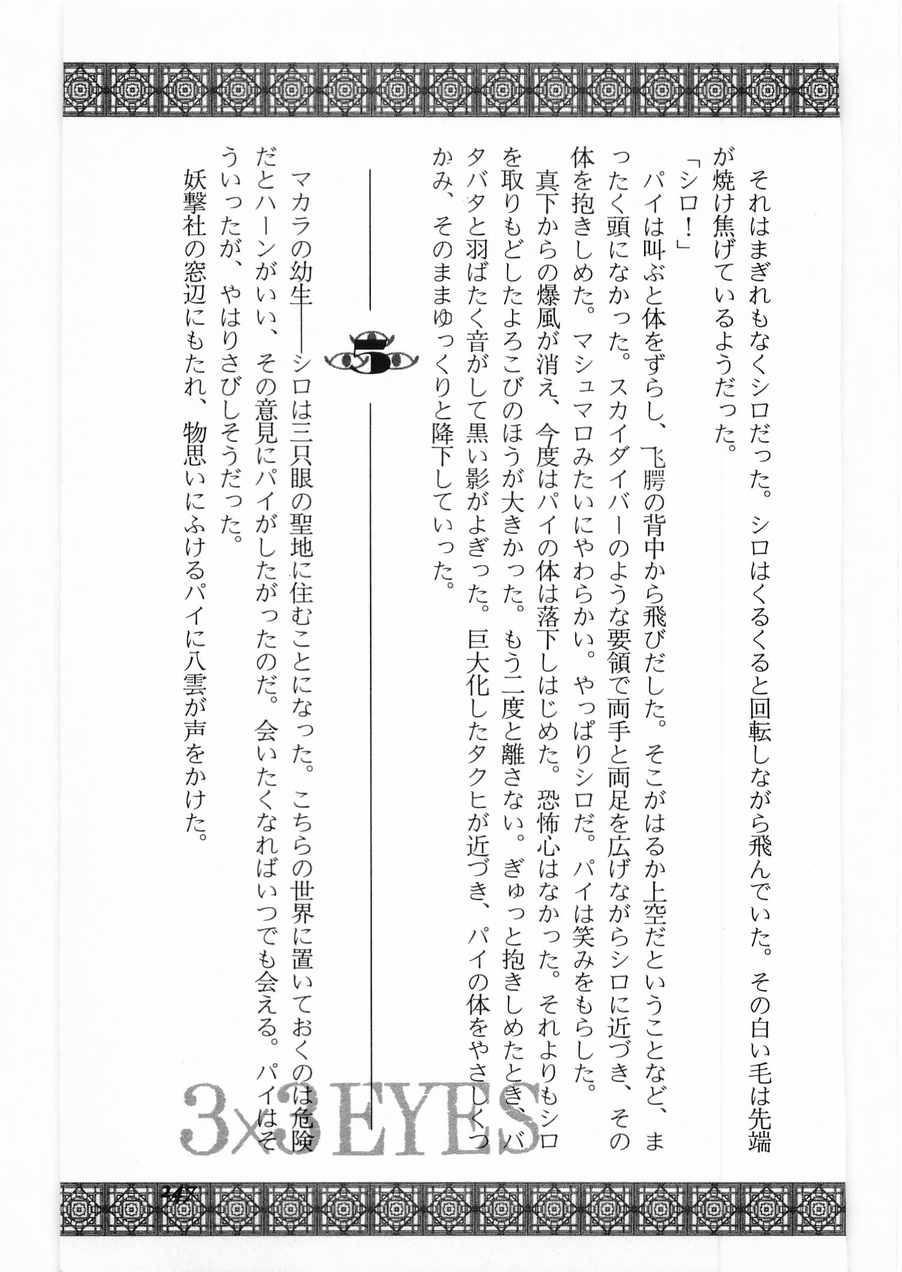 それはまぎれもなくシロだった。シロはくるくると回転しながら飛んでいた。その白い毛は先端
が焼け焦げているようだった。
「シロ！」
パイは叫ぶと体をずらし、飛腭の背中から飛びだした。そこがはるか上空だということなど、ま
ったく頭になかった。スカイダイバーのような要領で両手と両足を広げながらシロに近づき、その
体を抱きしめた。マシュマロみたいにやわらかい。やっぱりシロだ。パイは笑みをもらした。
真下からの爆風が消え、今度はパイの体は落下しはじめた。恐怖心はなかった。それよりもシロ
を取りもどしたよろこびのほうが大きかった。もう二度と離さない。ぎゅっと抱きしめたとき、バ
タバタと羽ばたく音がして黒い影がよぎった。巨大化したタクヒが近づき、パイの体をやさしくつ
かみ、そのままゆっくりと降下していった。
5
マカラの幼生――シロは三只眼の聖地に住むことになった。こちらの世界に置いておくのは危険
だとハーンがいい、その意見にパイがしたがったのだ。会いたくなればいつでも会える。パイはそ
ういったが、やはりさびしそうだった。
妖撃社の窓辺にもたれ、物思いにふけるパイに八雲が声をかけた。
3×3 EYES
247